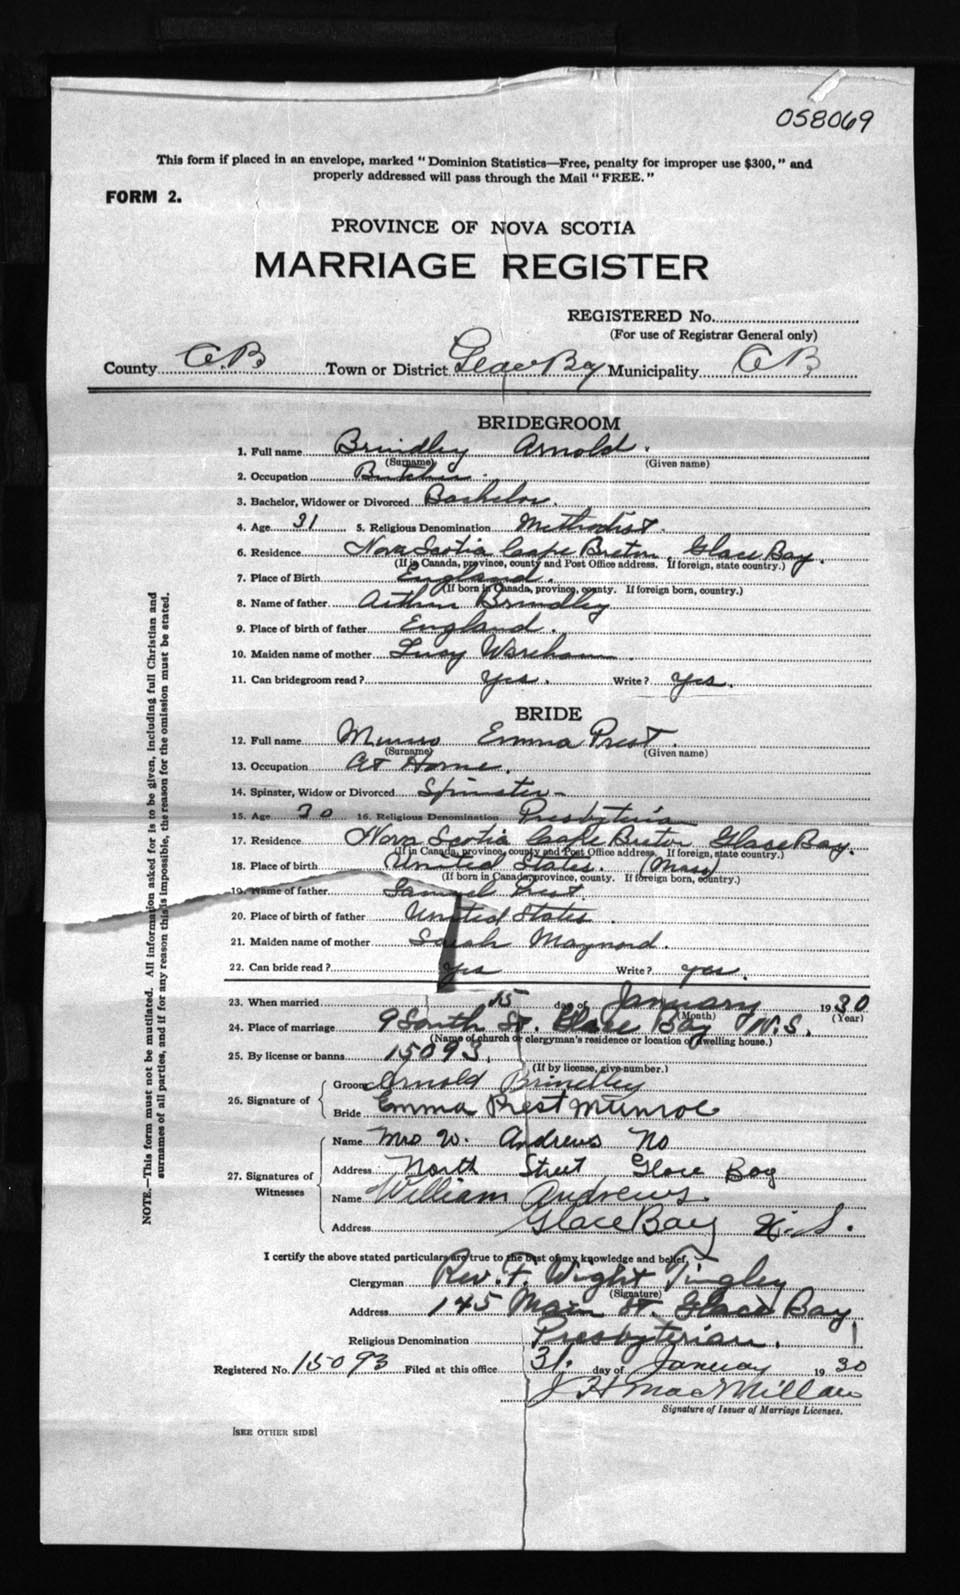 058069
This form if placed in an envelope, marked "Dominion Statistics—Free, penalty for improper use $300," and
properly addressed will pass through the Mail "FREE."
FORM 2.
PROVINCE OF NOVA SCOTIA
MARRIAGE REGISTER
REGISTERED No.
(For use of Registrar General only)
County C.B Town or District Glace Bay Municipality C B
BRIDEGROOM
1. Full name Brindley Arnold.
(Surname) (Given name)
2. Occupation Butcher
3. Bachelor, Widower or Divorced Bachelor.
4. Age 31 5. Religious Denomination Methodist.
6. Residence Nova Scotia Cape Breton, Glace Bay.
(If in Canada, province, county and Post Office address. If foreign, state country.)
7. Place of Birth England.
(If born in Canada, province, county. If foreign born, country.)
8. Name of father Arthur Brindley
9. Place of birth of father England.
10. Maiden name of mother Lucy Wareham.
11. Can bridegroom read? Yes. Write? Yes.
BRIDE
12. Full name Munro Emma Prest.
(Surname) (Given name)
13. Occupation At Home.
14. Spinster, Widow or Divorced Spinster-
15. Age 30 16. Religious Denomination Presbyterian
17. Residence Nova Scotia Cape Breton Glace Bay.
(If in Canada, province, county and Post Office address. If foreign, state country.)
18. Place of birth United States. (Mass)
(If born in Canada, province, county. If foreign born, country.)
19. Name of father Samuel Prest
20. Place of birth of father United States.
21. Maiden name of mother Sarah Maynard.
22. Can bride read? Yes Write? yes.
23. When married 15 day of January 1930
(Month) (Year)
24. Place of marriage 9 South St. Glace Bay N.S.
(Name of church or clergyman's residence or location of dwelling house.)
25. By license or banns 15093.
(If by license, give number.)
26. Signature of Groom Arnold Brindley
Bride Emma Prest Munroe
27. Signatures of Witnesses
Name Mrs W. Andrews No
Address North Street Glace Bay
Name William Andrews.
Address Glace Bay N.S.
I certify the above stated particulars are true to the best of my knowledge and belief,
Clergyman Rev. F. Wight Tingley
(Signature)
Address 145 Main St. Glace Bay
Religious Denomination Presbyterian.
Registered No. 15093 Filed at this office 31. day of January 1930
J H MacMillan
Signature of Issuer of Marriage Licenses.
[SEE OTHER SIDE]
NOTE.—This form must not be mutilated. All information asked for is to be given, including full Christian and
surnames of all parties, and if for any reason this is impossible, the reason for the omission must be stated.